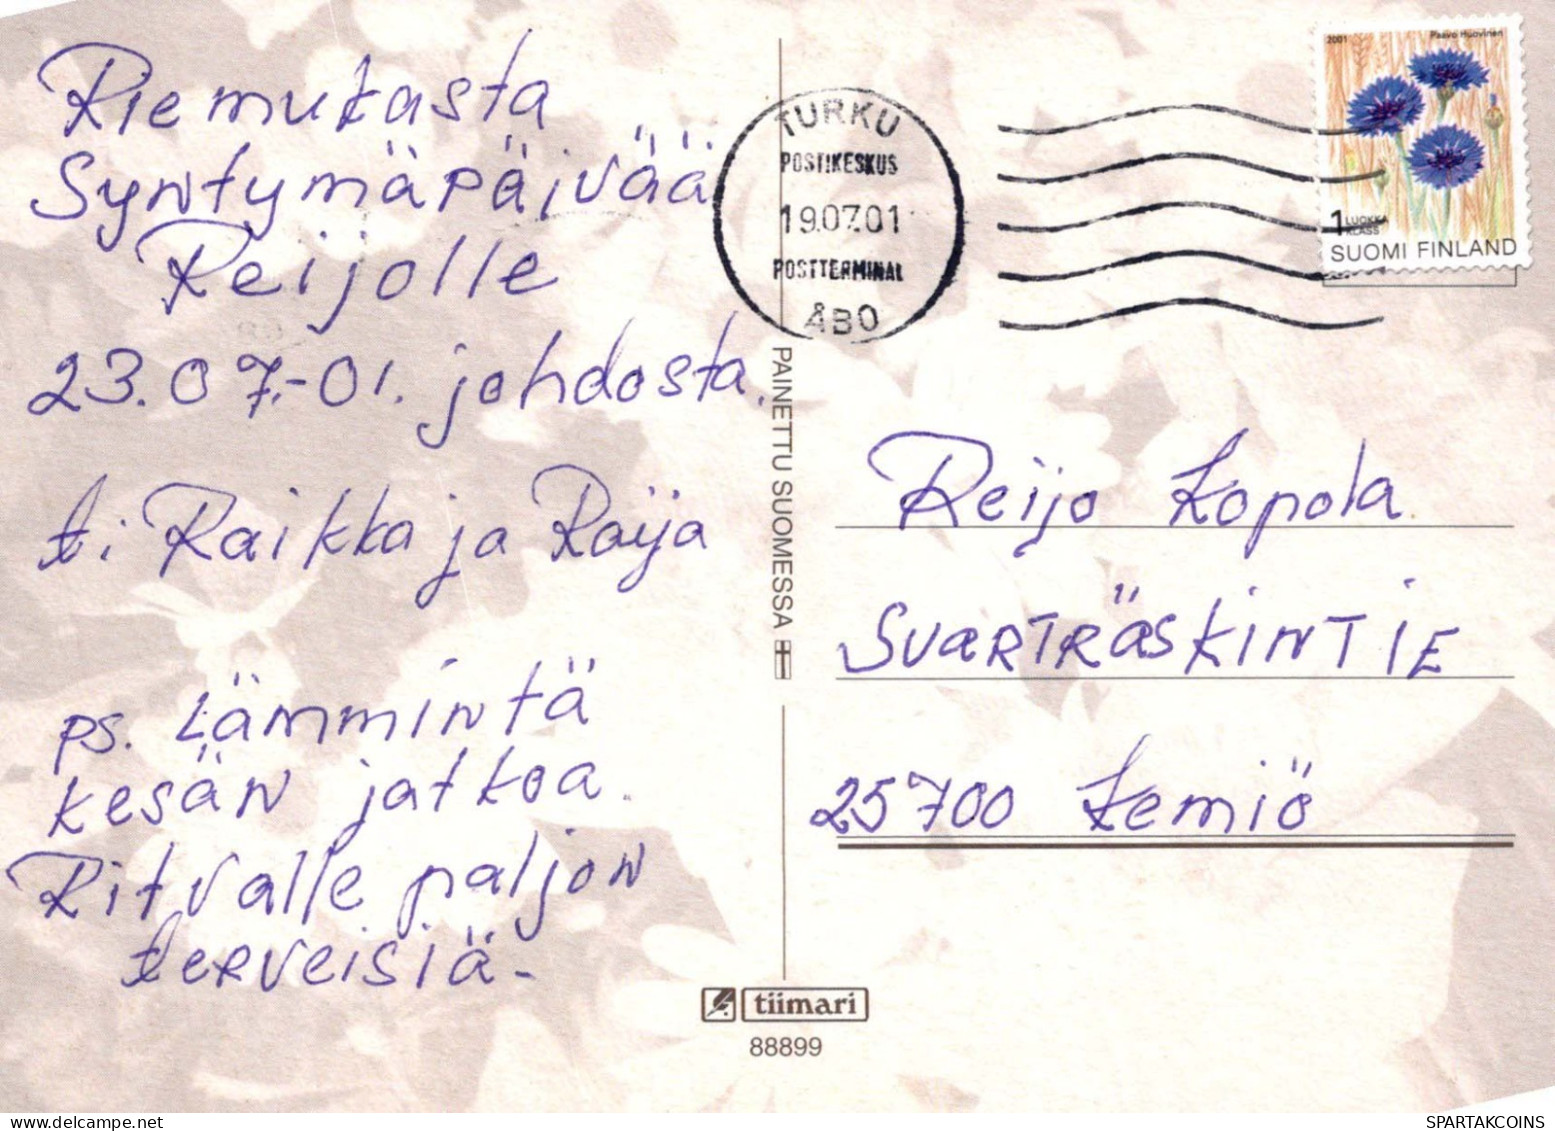 Riemukasta
Syntymäpäivää
Reijolle
23.07.-01. johdosta.
t: Raikka ja Raija
ps. Lämmintä
kesän jatkoa.
Ritvalle paljon
terveisiä-
TURKU
POSTIKESKUS
19.07.01
POSTTERMINAL
ÅBO
2001 Paavo Huovinen
1 LUOKKA
KLASS
SUOMI FINLAND
PAINETTU SUOMESSA
Reijo Kopola
SVARTRÄSKINTIE
25700 Kemiö
tiimari
88899
www.delcampe.net
SPARTAKCOINS